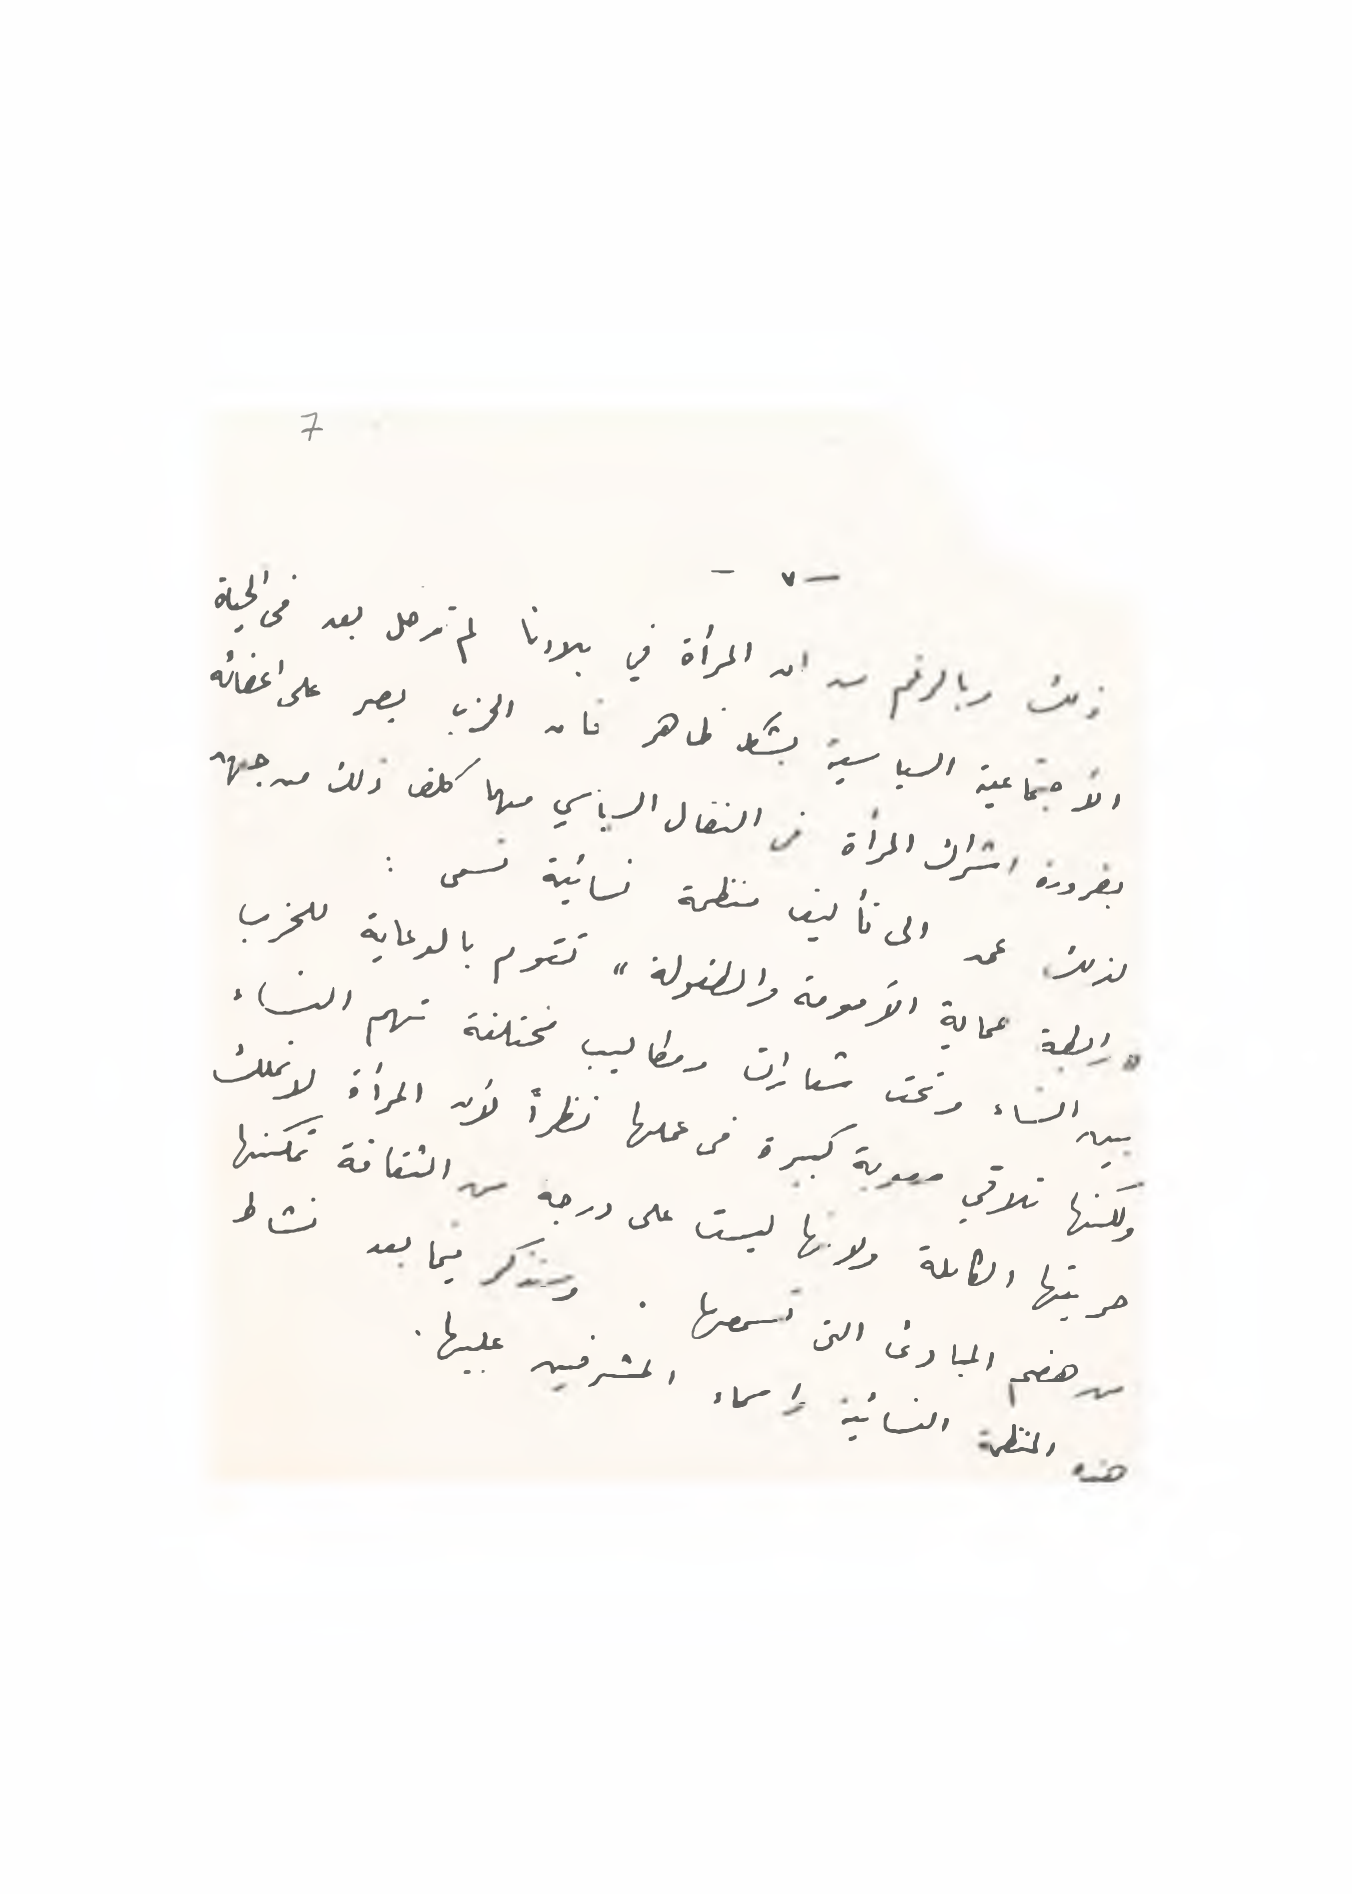 7
— ٧ —
ذلك وبالرغم من ان المرأة في بلادنا لم تدخل بعد في الحياة
الأجتماعية السياسية بشكل ظاهر فان الحزب يصر على اعضائه
بضرورة اشراك المرأة في النضال السياسي مهما كلف ذلك من جهد
لذلك عمد الى تأليف منظمة نسائية تسمى :
« رابطة حماية الأمومة والطفولة » تقوم بالدعاية للحزب
بين النساء وتحت شعارات ومطاليب مختلفة تهم النساء
ولكنها تلاقي صعوبة كبيرة في عملها نظراً لأن المرأة لا تملك
حريتها الكاملة ولانها ليست على درجة من الثقافة تمكنها
من هضم المبادئ التي تسمعها . وسنذكر فيما بعد نشاط
هذه المنظمة النسائية واسماء المشرفين عليها .